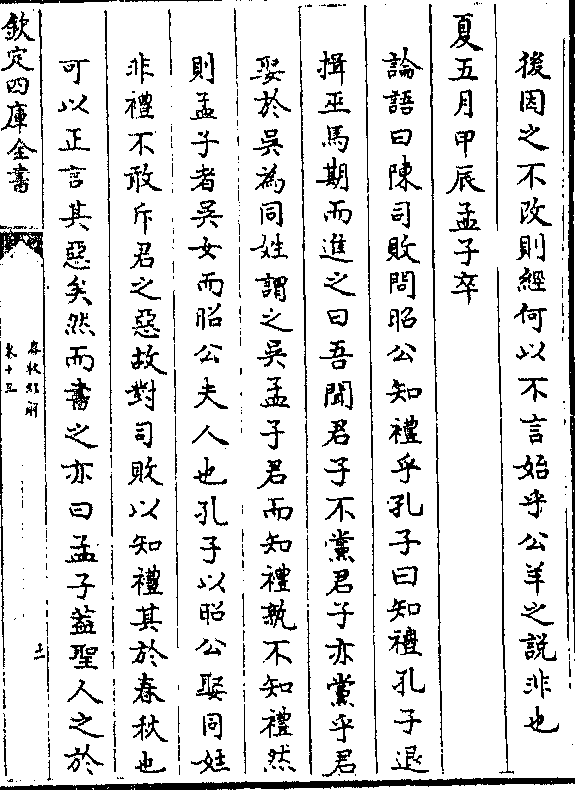 後因之不改則經何以不言始乎公羊之説非也
夏五月甲辰孟子卒
論語曰陳司敗問昭公知禮乎孔子曰知禮孔子退
揖巫馬期而進之曰吾聞君子不黨君子亦黨乎君
娶於吳為同姓謂之吳孟子君而知禮孰不知禮然
則孟子者吳女而昭公夫人也孔子以昭公娶同姓
非禮不敢斥君之惡故對司敗以知禮其於春秋也
可以正言其惡矣然而書之亦曰孟子葢聖人之於
欽定四庫全書
春秋經解
卷十三
十一